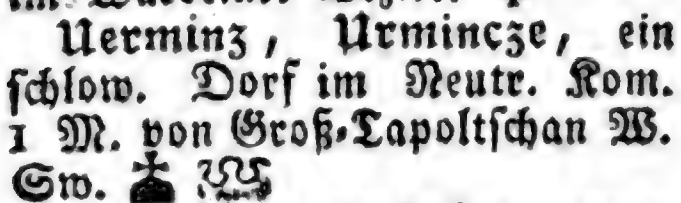 Uerminz, Urmincze, ein
schlow. Dorf im Neutr. Kom.
1 M. von Groß-Tapoltschan W.
Sw.